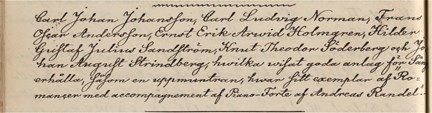 Carl Johan Johansson, Carl Ludvig Norman, Frans
Oscar Andersson, Ernst Erik Arvid Holmgren, Hilder
Gustaf Julius Sandström, Knut Theodor Söderberg och Jo
han August Strindberg, hvilka visat goda anlag för Sång
erhålla, såsom en uppmuntran, hvar sitt exemplar af Ro-
manser med accompagnement af Piano-Forte af Andreas Randel.